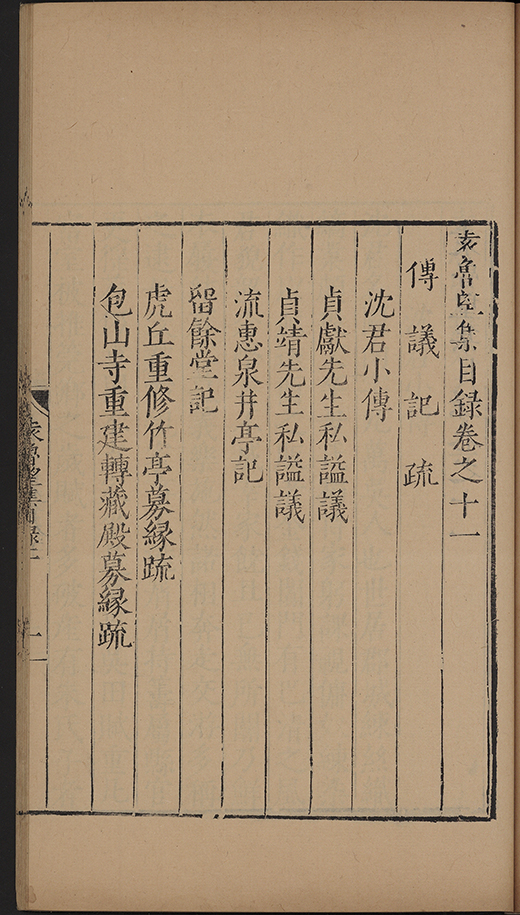 袁魯望集目録卷之十一
傳 議 記 疏
沈君小傳
貞獻先生私謚議
貞靖先生私謚議
流惠泉井亭記
留餘堂記
虎丘重修竹亭募縁疏
包山寺重建轉藏殿募縁疏
袁魯望集目録